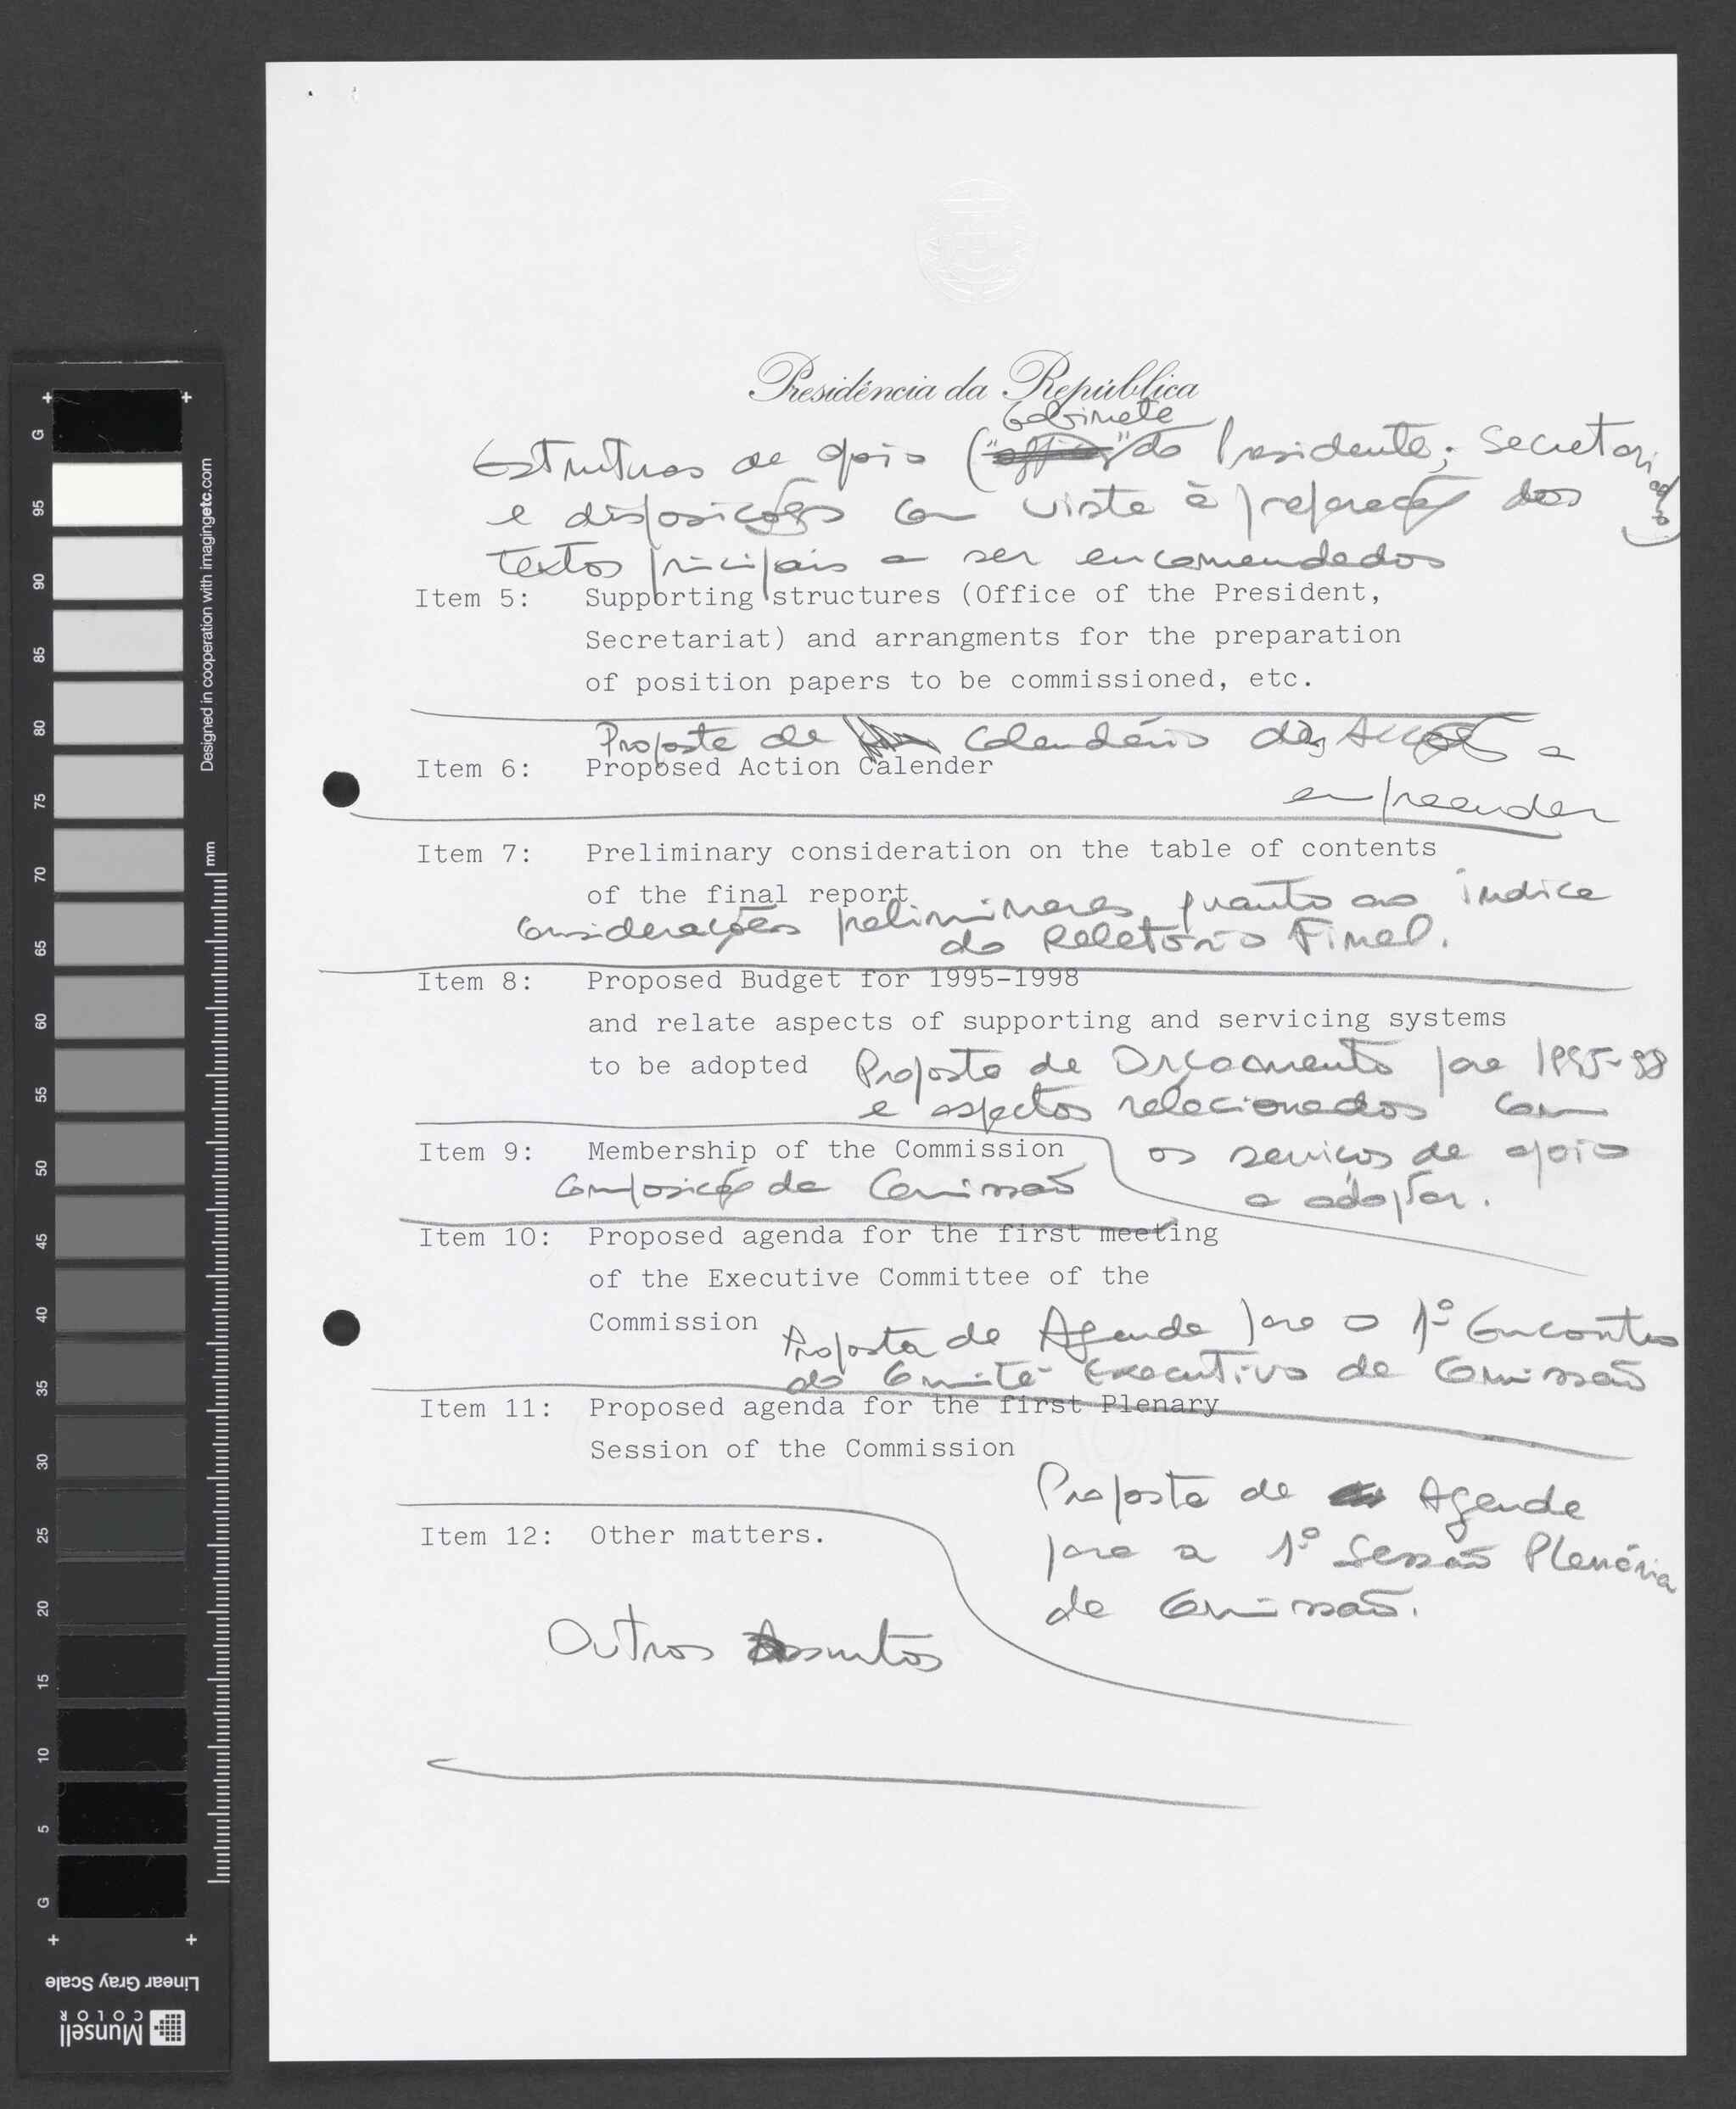 Presidência da República
Gabinete
Estruturas de apoio ("office" do Presidente; Secretariado)
e disposições com vista à preparação dos
textos principais a ser encomendados
Item 5: Supporting structures (Office of the President,
Secretariat) and arrangments for the preparation
of position papers to be commissioned, etc.
Proposta de Calendário das Acções a
Item 6: Proposed Action Calender
empreender
Item 7: Preliminary consideration on the table of contents
of the final report
Considerações preliminares quanto ao índice
do Relatório Final.
Item 8: Proposed Budget for 1995-1998
and relate aspects of supporting and servicing systems
to be adopted Proposta de Orçamento para 1995-98
e aspectos relacionados com
Item 9: Membership of the Commission os serviços de apoio
Composição da Comissão a adoptar.
Item 10: Proposed agenda for the first meeting
of the Executive Committee of the
Commission Proposta de Agenda para o 1º Encontro
do Comité Executivo da Comissão
Item 11: Proposed agenda for the first Plenary
Session of the Commission
Proposta de Agenda
Item 12: Other matters.
para a 1ª Sessão Plenária
da Comissão.
Outros Assuntos
G
95
90
85
80
75
70
65
60
55
50
45
40
35
30
25
20
15
10
5
G
Designed in cooperation with imagingetc.com
mm
Linear Gray Scale
Munsell
COLOR